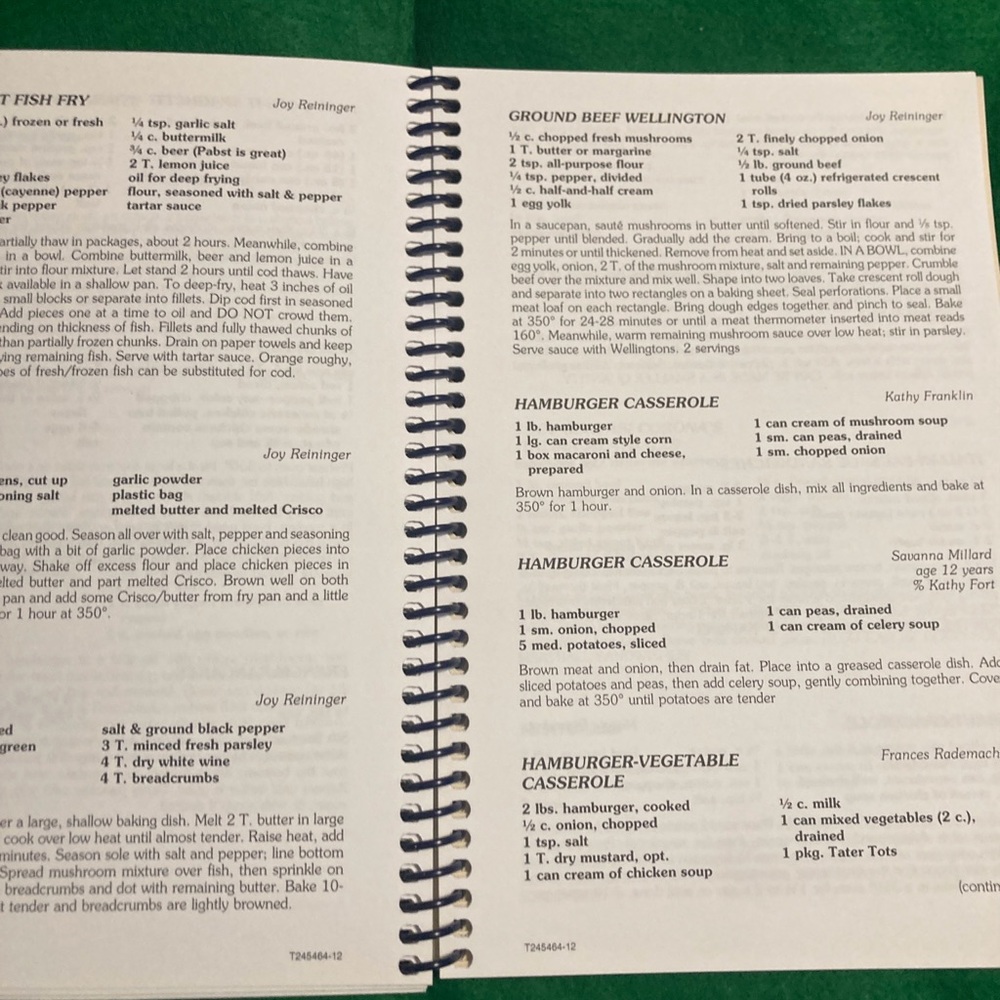 T FISH FRY
Joy Reininger
.) frozen or fresh
¼ tsp. garlic salt
¼ c. buttermilk
¾ c. beer (Pabst is great)
2 T. lemon juice
ey flakes
oil for deep frying
(cayenne) pepper
flour, seasoned with salt & pepper
k pepper
tartar sauce
er
artially thaw in packages, about 2 hours. Meanwhile, combine
in a bowl. Combine buttermilk, beer and lemon juice in a
tir into flour mixture. Let stand 2 hours until cod thaws. Have
available in a shallow pan. To deep-fry, heat 3 inches of oil
small blocks or separate into fillets. Dip cod first in seasoned
Add pieces one at a time to oil and DO NOT crowd them.
nding on thickness of fish. Fillets and fully thawed chunks of
than partially frozen chunks. Drain on paper towels and keep
ying remaining fish. Serve with tartar sauce. Orange roughy,
pes of fresh/frozen fish can be substituted for cod.
Joy Reininger
ens, cut up
garlic powder
oning salt
plastic bag
melted butter and melted Crisco
clean good. Season all over with salt, pepper and seasoning
bag with a bit of garlic powder. Place chicken pieces into
way. Shake off excess flour and place chicken pieces in
elted butter and part melted Crisco. Brown well on both
pan and add some Crisco/butter from fry pan and a little
or 1 hour at 350°.
Joy Reininger
ed
salt & ground black pepper
green
3 T. minced fresh parsley
4 T. dry white wine
4 T. breadcrumbs
er a large, shallow baking dish. Melt 2 T. butter in large
cook over low heat until almost tender. Raise heat, add
minutes. Season sole with salt and pepper; line bottom
Spread mushroom mixture over fish, then sprinkle on
breadcrumbs and dot with remaining butter. Bake 10-
t tender and breadcrumbs are lightly browned.
T245464-12
GROUND BEEF WELLINGTON
Joy Reininger
½ c. chopped fresh mushrooms
1 T. butter or margarine
2 tsp. all-purpose flour
¼ tsp. pepper, divided
½ c. half-and-half cream
1 egg yolk
2 T. finely chopped onion
¼ tsp. salt
½ lb. ground beef
1 tube (4 oz.) refrigerated crescent
rolls
1 tsp. dried parsley flakes
In a saucepan, sauté mushrooms in butter until softened. Stir in flour and ⅛ tsp.
pepper until blended. Gradually add the cream. Bring to a boil; cook and stir for
2 minutes or until thickened. Remove from heat and set aside. IN A BOWL, combine
egg yolk, onion, 2 T. of the mushroom mixture, salt and remaining pepper. Crumble
beef over the mixture and mix well. Shape into two loaves. Take crescent roll dough
and separate into two rectangles on a baking sheet. Seal perforations. Place a small
meat loaf on each rectangle. Bring dough edges together and pinch to seal. Bake
at 350° for 24-28 minutes or until a meat thermometer inserted into meat reads
160°. Meanwhile, warm remaining mushroom sauce over low heat; stir in parsley.
Serve sauce with Wellingtons. 2 servings
HAMBURGER CASSEROLE
Kathy Franklin
1 lb. hamburger
1 lg. can cream style corn
1 box macaroni and cheese,
prepared
1 can cream of mushroom soup
1 sm. can peas, drained
1 sm. chopped onion
Brown hamburger and onion. In a casserole dish, mix all ingredients and bake at
350° for 1 hour.
HAMBURGER CASSEROLE
Savanna Millard
age 12 years
% Kathy Fort
1 lb. hamburger
1 sm. onion, chopped
5 med. potatoes, sliced
1 can peas, drained
1 can cream of celery soup
Brown meat and onion, then drain fat. Place into a greased casserole dish. Add
sliced potatoes and peas, then add celery soup, gently combining together. Cove
and bake at 350° until potatoes are tender
HAMBURGER-VEGETABLE
CASSEROLE
Frances Rademach
2 lbs. hamburger, cooked
½ c. onion, chopped
1 tsp. salt
1 T. dry mustard, opt.
1 can cream of chicken soup
½ c. milk
1 can mixed vegetables (2 c.),
drained
1 pkg. Tater Tots
(contin
T245464-12